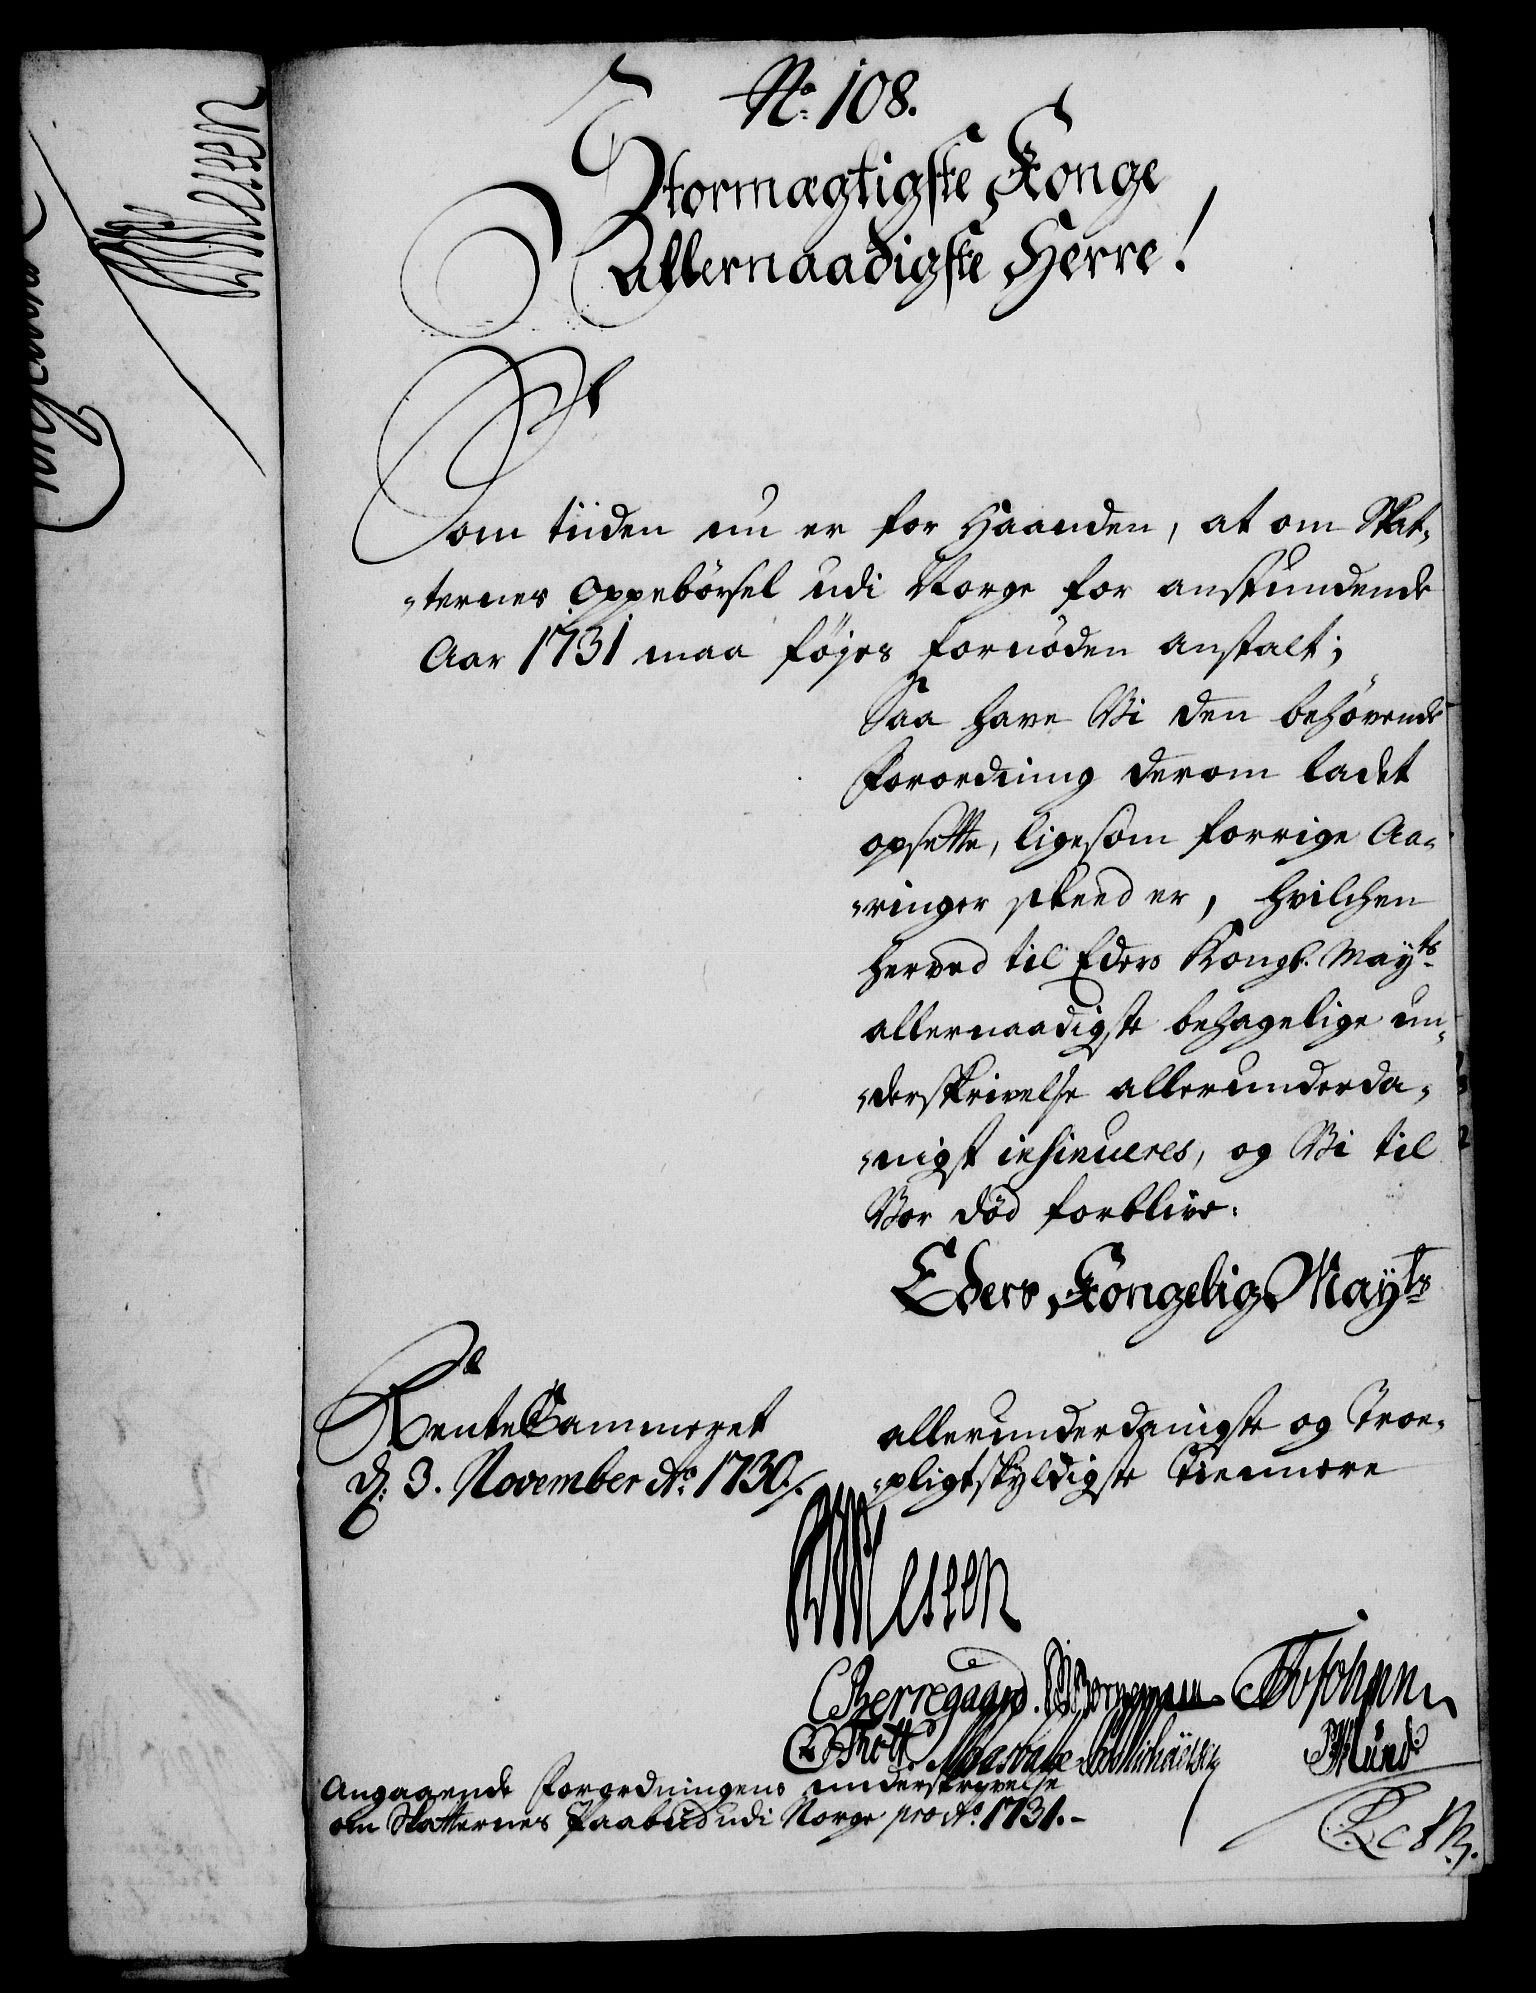 No. 108.
Stormægtigste Konge
Allernaadigste Herre!
Som tiiden nu er for Haanden, at om Skat-
-ternes Oppebörsel udi Norge for anstundende
Aar 1731 maa föjes fornöden anstalt;
Saa have Vi den behövende
Forordning derom ladet
opsette, ligesom forrige Aa-
-ringer skeed er, hvilchen
herved til Eders Kongl. Mayts
allernaadigste behagelige un-
-derskrivelse allerunderda-
-nigst insinueres, og Vi til
Vor död forblive.
Eders Kongelig Mayts
RenteCammeret
d. 3. November Ao. 1730.
allerunderdanigste og Troe-
-pligtskyldigste Tiennere
Wessen
CBerregaard. Bornemann
Thott
Lund
Angaaende Forordningens underskrivelse
om Skatternes Paabud udi Norge pro Ao. 1731.-